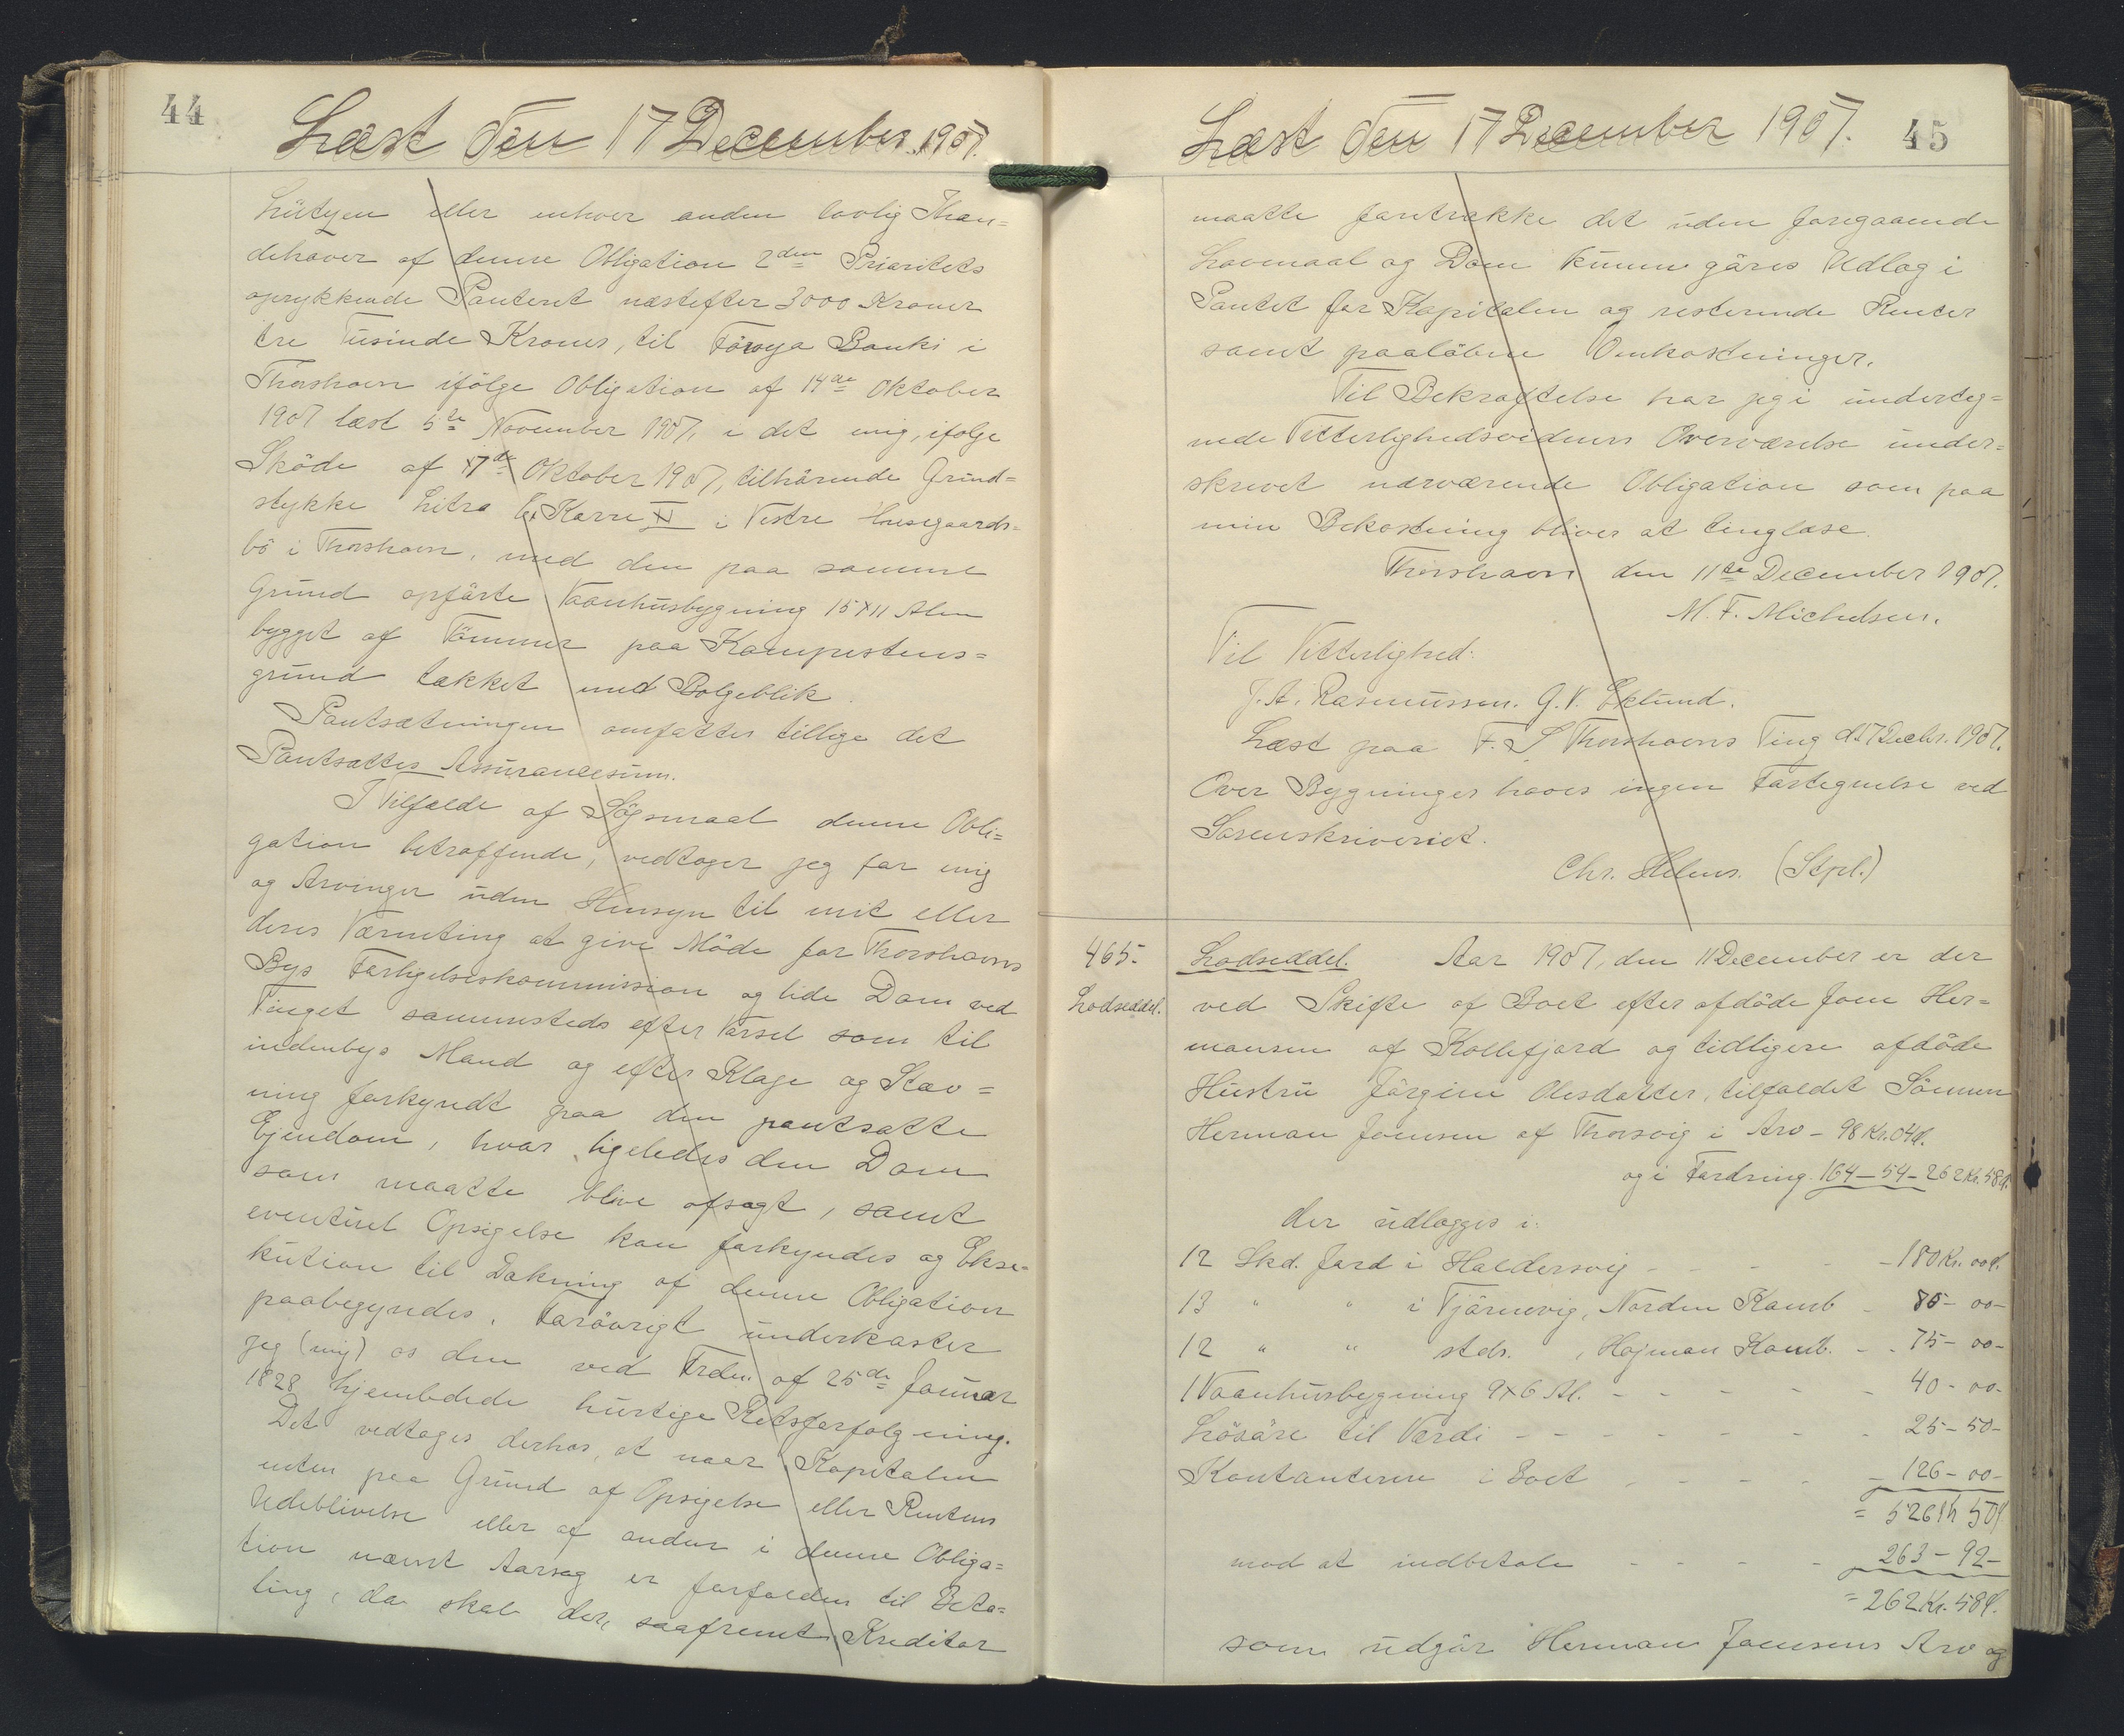 44
Læst den 17 December 1907.
Lützen eller enhver anden lovlig Ihæn=
dehaver af denne Obligation 2den Prioritets
oprykkende Panteret næstefter 3000 Kroner
tre Tusinde Kroner, til Föroya Banki i
Thorshavn ifölge Obligation af 14de Oktober
1907 læst 5te November 1907, i det mig, ifölge
Sköde af 17de Oktober 1907, tilhörende Grund=
stykke Litra Karre XI i Vestre Husegaards=
bö i Thorshavn, med den paa samme
Grund opförte Vaanhusbygning 15x11 Alen
bygget af Tömmer paa Kampestens=
grund tækket med Bölgeblik.
Pantsætningen omfatter tillige det
Pantsattes Assurancesum.
I Tilfælde af Sögsmaal denne Obli=
gation betræffende, vedtager jeg for mig
og Arvinger uden Hensyn til mit eller
deres Værneting at give Möde for Thorshavns
Bys Forligelseskommission og lide Dom ved
Tinget sammesteds efter Varsel som til
indenbys Mand og efter Klage og Stæv=
ning forkyndt paa den pantsatte
Ejendom, hvor ligeledes den Dom
som maatte blive afsagt, samt
eventuel Opsigelse kan forkyndes og Ekse=
kution til Dækning af denne Obligation
paabegyndes. Forövrigt underkaster
jeg (mig) os den ved Frdn. af 25de Januar
1828 hjemlede hurtige Retsforfölgning.
Det vedtages derhos, at naar Kapitalen
enten paa Grund af Opsigelse eller Rentens
Udeblivelse eller af anden i denne Obliga=
tion nævnt Aarsag er forfalden til Beta=
ling, da skal der, saafremt Kreditor
Læst den 17 December 1907.
45
maatte foretrække det uden foregaaende
Lovmaal og Dom kunne göres Udlæg i
Pantet for Kapitalen og resterende Renter
samt paalöbne Omkostninger.
Til Bekræftelse har jeg i underteg=
nede Vitterlighedsvidners Overværelse under=
skrevet nærværende Obligation som paa
min Bekostning bliver at tinglæse.
Thorshavn den 11te December 1907.
M. F. Michelsen.
Til Vitterlighed:
J. A. Rasmussen. G. V. Eklund.
Læst paa F. S Thorshavns Ting d 17 Decbr. 1907.
Over Bygninger haves ingen Fortegnelse ved
Sorenskriveriet.
Chr. Helms. (Stpl.)
465.
Lodseddel.
Lodseddel. Aar 1907, den 11 December er der
ved Skifte af Boet efter afdöde Joen Her=
mansen af Kollefjord og tidligere afdöde
Hustru Jörgine Olesdatter, tilfaldet Sönnen
Herman Joensen af Thorsvig i Arv - 98 Kr. 04 ø.
og i Fordring 164 - 54 - 262 Kr. 58 ø.
der udlægges i:
12 Skd. Jord i Haldersvig - - - - 180 Kr. 00 ø.
13 " " i Tjörnevig, Norden Kamb - 80 - 00 -
12 " " stds. , Hojman Kamb. - - 75 - 00 -
1 Vaanhusbygning 9x6 Al. - - - - - 40 - 00 -
Lösöre til Værdi - - - - - - - 25 - 50 -
Kontanterne i Boet - - - - - 126 - 00 -
= 526 Kr 50 ø
mod at indbetale - - - - 263 - 92 -
= 262 Kr. 58 ø.
som udgör Herman Joensens Arv og